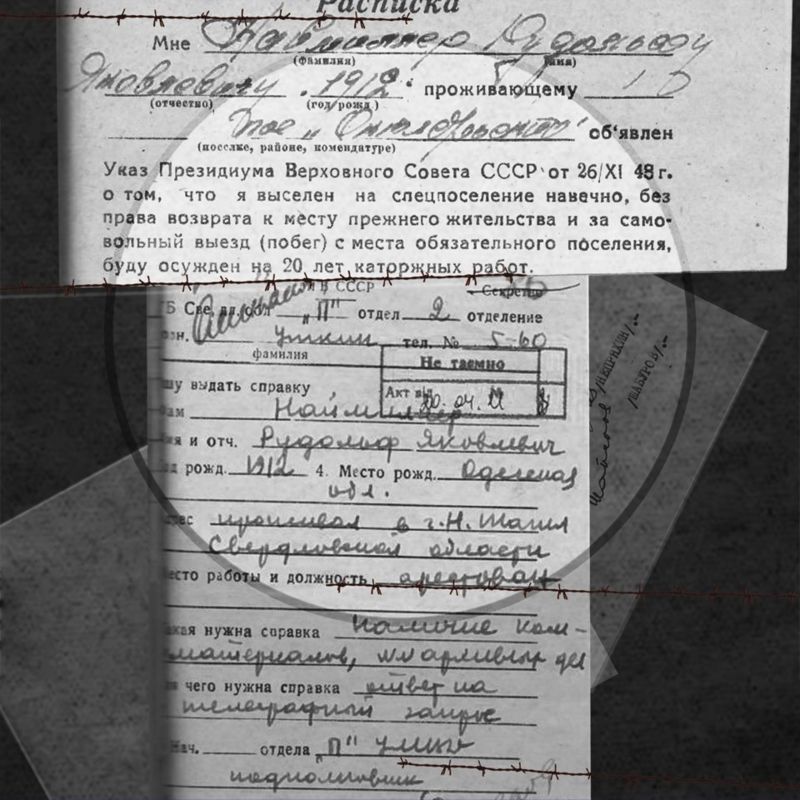 Расписка
Мне Наймиллер Рудольфу
(фамилия) (имя)
Яковлевичу 1912 проживающему
(отчество) (год рожд.)
пос. об'явлен
(поселке, районе, комендатуре)
Указ Президиума Верховного Совета СССР от 26/XI 48 г.
о том, что я выселен на спецпоселение навечно, без
права возврата к месту прежнего жительства и за само-
вольный выезд (побег) с места обязательного поселения,
буду осужден на 20 лет каторжных работ.
СССР Секретно
ГБ Свердл. обл. "П" отдел 2 отделение
тел. № 5-60
фамилия
Не таємно
шу выдать справку
Акт від №
Наймиллер
ия и отч. Рудольф Яковлевич
рожд. 1912 4. Место рожд. Одесская
обл.
рес проживал в г. Н. Тагил
Свердловской области
есто работы и должность арестован
акая нужна справка наличие ком-
материалов, архивных дел
чего нужна справка ответ на
телеграфный запрос
Нач. отдела "П"
подполковник